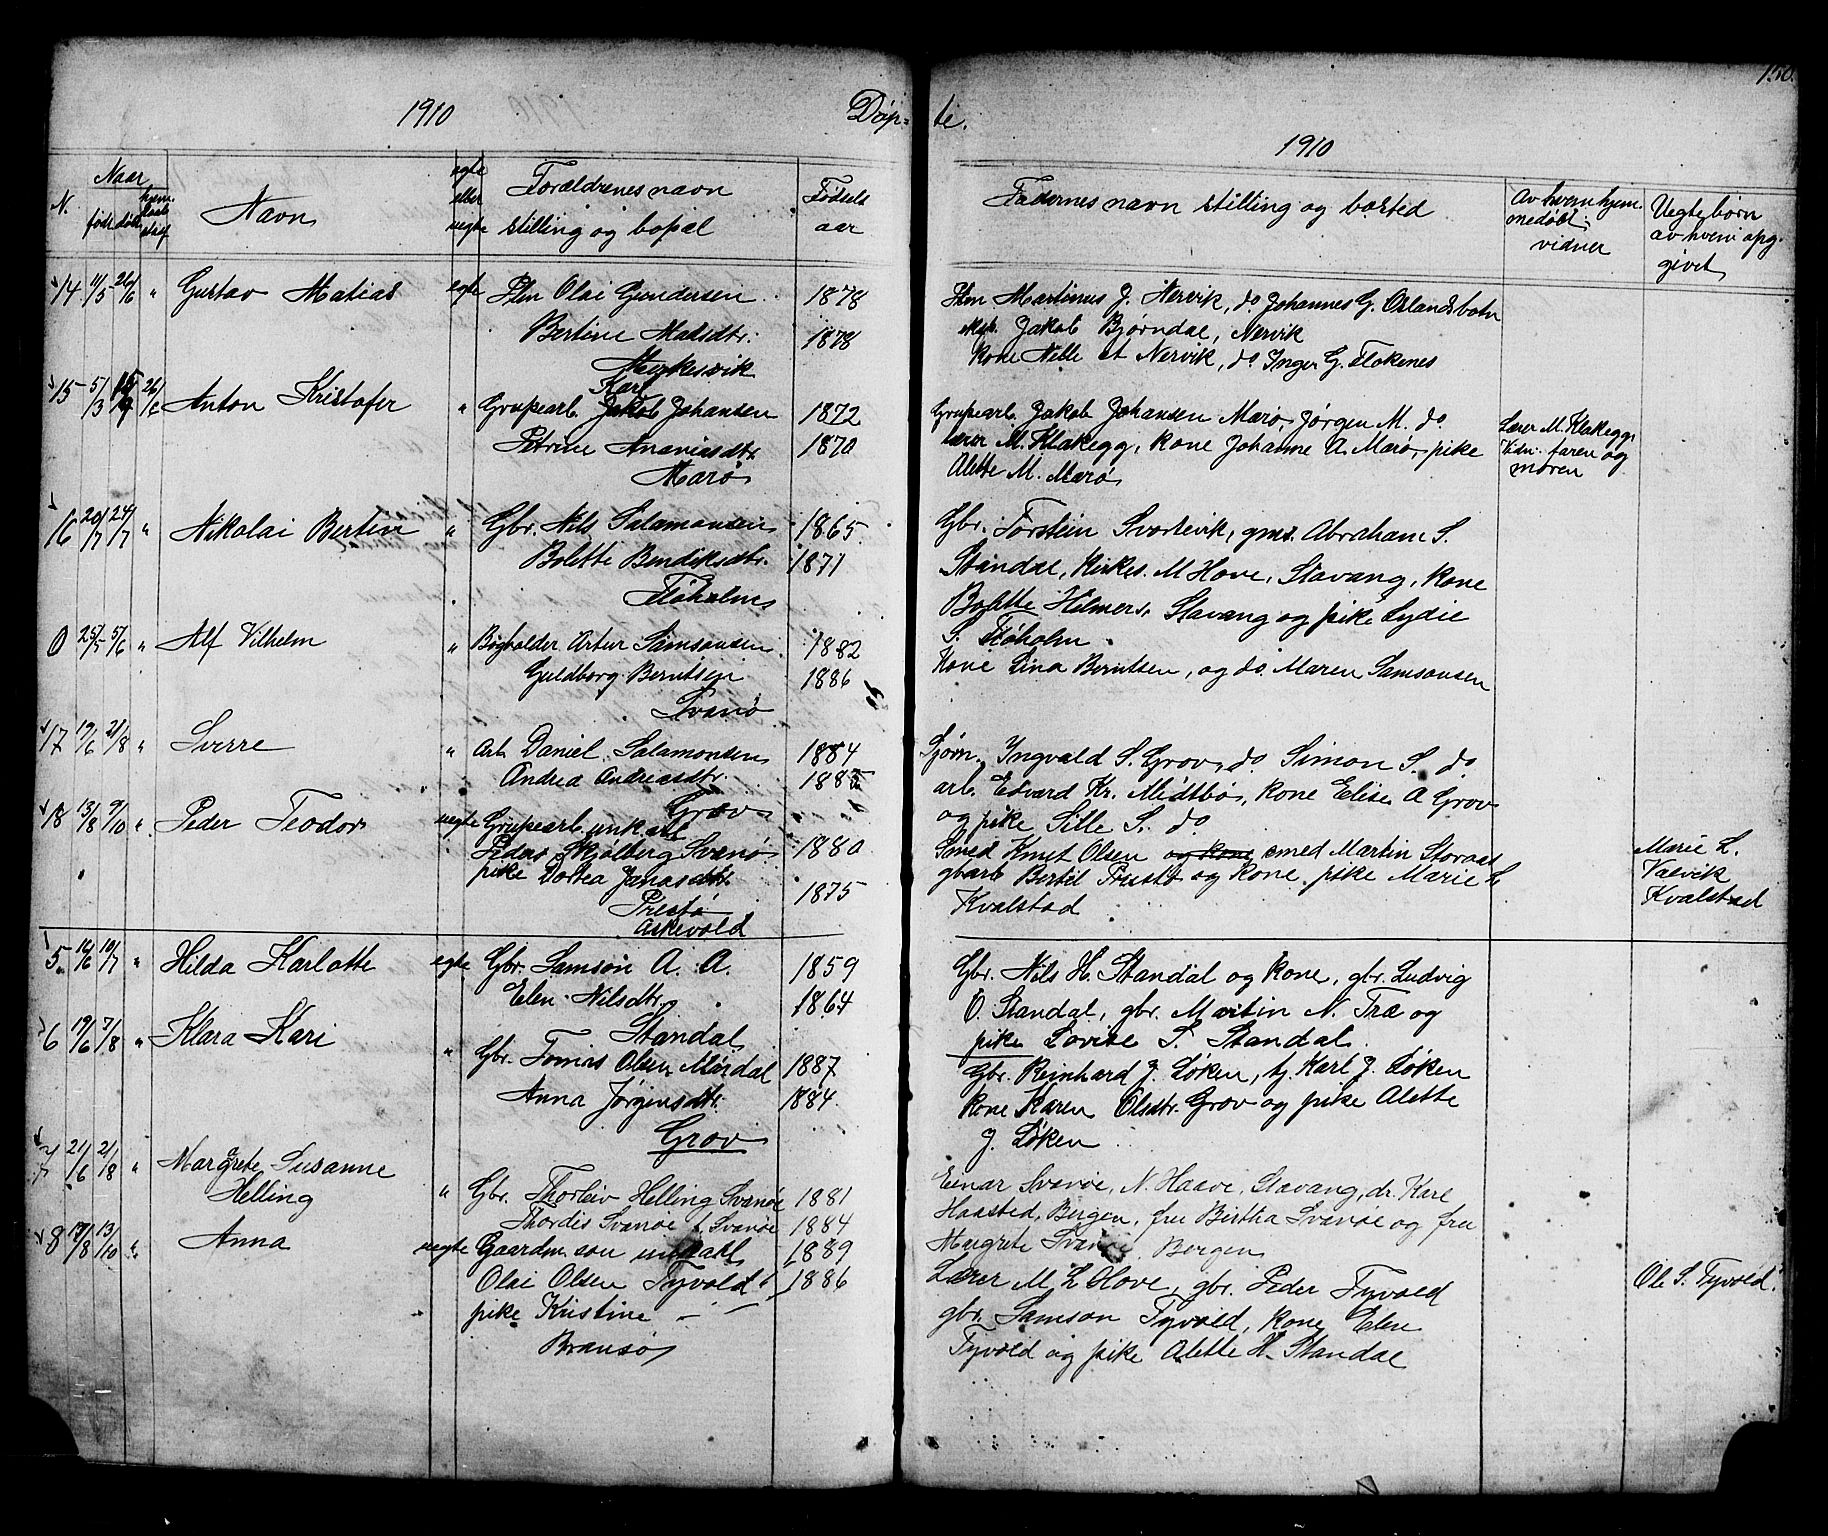 150.
1910
Døp=
te.
1910
N.
Naar
født
døbt
hjem.
Navn
egte
eller
uegte
Forældrenes navn
stilling og bopæl
Fødsels
aar
Fadernes navn stilling og bosted
Av hvem hjem.
medøbt
vidner
Uegte børn
av hvem opg.
givet
14 11/5 26/6 " Gustav Matias egte Olai Gundersen 1878
Bertine Matsdtr. 1878
Martinus J. Nervik, do Johannes G. Oslandsbotn
Jakob Bjørndal, Nervik
kone Nervik, do Inger G. Flokenes
15 5/3 26/6 Anton Kristofer " Grupearb. Jakob Johansen 1872
Karl
Petrine Ananiasdtr. 1870
Marø
Grupearb. Jakob Johansen Marø, Jørgen M. do
lærer M. Klakegg, kone Johanne A. Marø, pike
Alette M. Marø
Lærer M. Klakegg.
Vidn. faren og
moren
16 20/7 24/7 " Nikolai Bertin " Gbr. Nils Salamonsen 1865
Bolette Bendiksdtr. 1871
Fløholm
Gbr. Torstein Svortevik, gms. Abraham S.
Standal, Kirkes. M Hove, Stavang, kone
Bolette Hilmers. Stavang og pike Lydie
S. Fløholm
0 25/5 5/6 " Alf Vilhelm " Bogholder Artur Samsonsen 1882
Guldborg Berntsen 1886
Svanø
Kone Lina Berntsen, og do. Maren Samsonsen
17 19/6 21/8 " Sverre " Arb. Daniel Salamonsen 1884
Andrea Andreasdtr. 1885
Grov
Sjørn. Ingvald S. Grov, do Simon S. do
arb. Edvard Kr. Midtbø, kone Elise A Grov
og pike Sille S. do
18 13/8 9/10 " Peder Teodor uegte Grupearb. unkarl
Peders Skjolberg Svanø 1880
pike Dortea Jonasdtr. 1875
Prestø
Askevold
Smed Knut Olsen og kone, smed Martin Storaas
gbarb Bertil Prestø og kone, pike Marie L
Kvalstad
Marie L.
Valvik
Kvalstad
5. 14/6 10/7 " Hilda Karlotte egte Gbr. Samson A. A. 1859
Elen Nilsdtr. 1864
Standal
Gbr. Nils H. Standal og kone, gbr. Ludvig
O. Standal, gbr. Martin N. Træ og
pike Lovise S. Standal.
6 19/6 7/8 " Klara Kari " Gbr. Tomas Olsen Mørdal 1887
Anna Jørgensdtr. 1884.
Grov
Gbr. Reinhard J. Løken, tj. Karl J. Løken
kone Karen Olsdtr. Grov og pike Alette
J. Løken
7 21/6 21/8 " Margrete Susanne
Helling " Gbr. Thorleiv Helling Svanøe 1881
Thordis Svanøe f Svanøe 1884
Einar Svanøe, N. Haave, Stavang, dr. Karl
Haasted, Bergen, fru Birtha Svanøe og fru
Margrete Svanøe, Bergen
8 17/8 13/10 " Anna uegte Gaardm. søn unkarl 1889
Olai Olsen Tyvold 1886
pike Kristine
Bransø
Lærer M. L Hove, gbr. Peder Tyvold
gbr. Samson Tyvold, kone Elen
Tyvold og pike Alette H. Standal
Ole S. Tyvold.